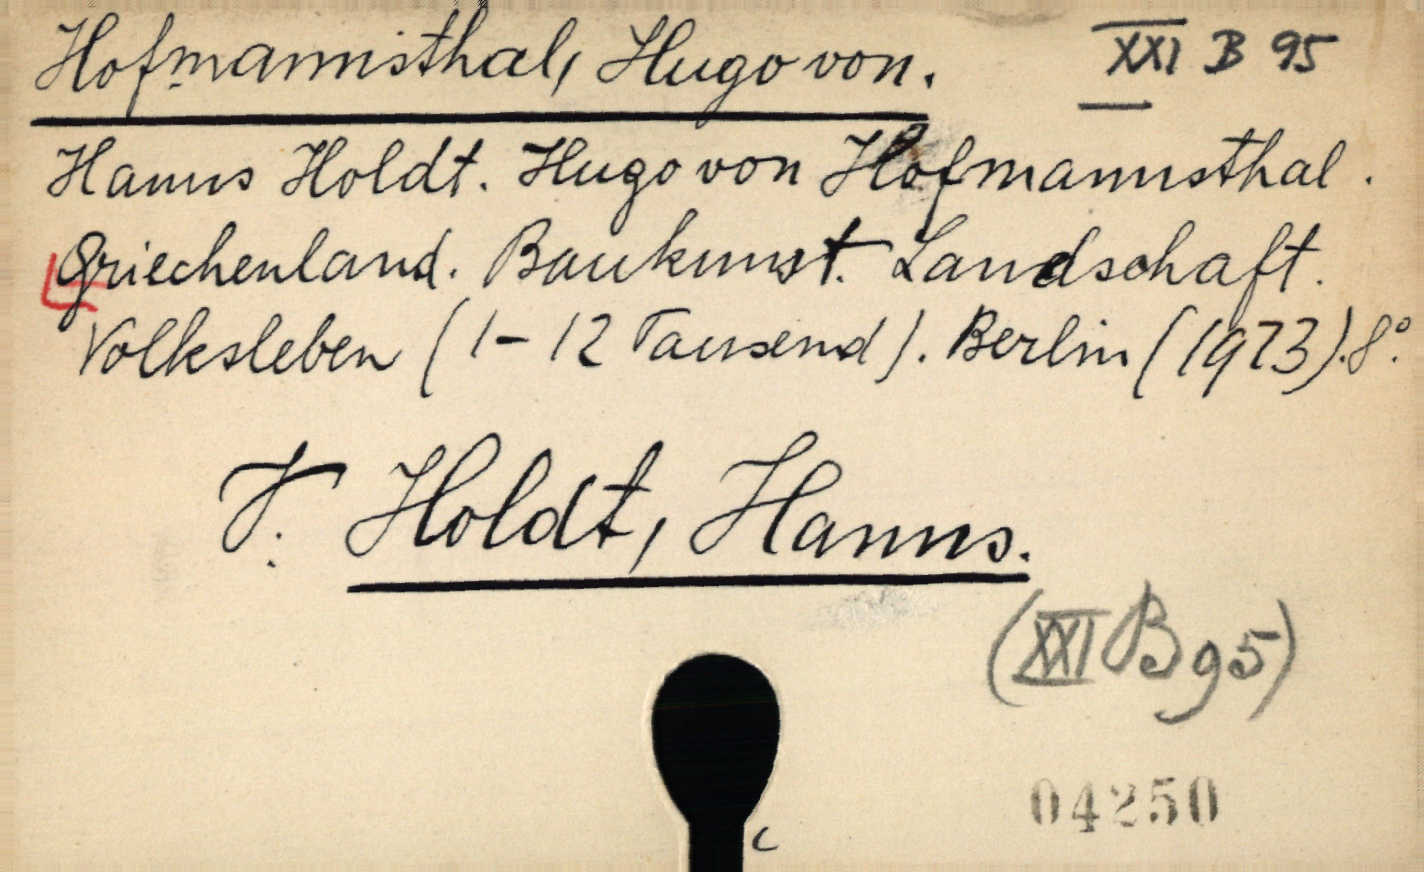 Hofmannsthal, Hugo von. XXI B 95
Hanns Holdt. Hugo von Hofmannsthal.
Griechenland. Baukunst. Landschaft.
Volksleben (1-12 Tausend). Berlin (1923). 8°.
V. Holdt, Hanns.
(XXI B 95)
04250